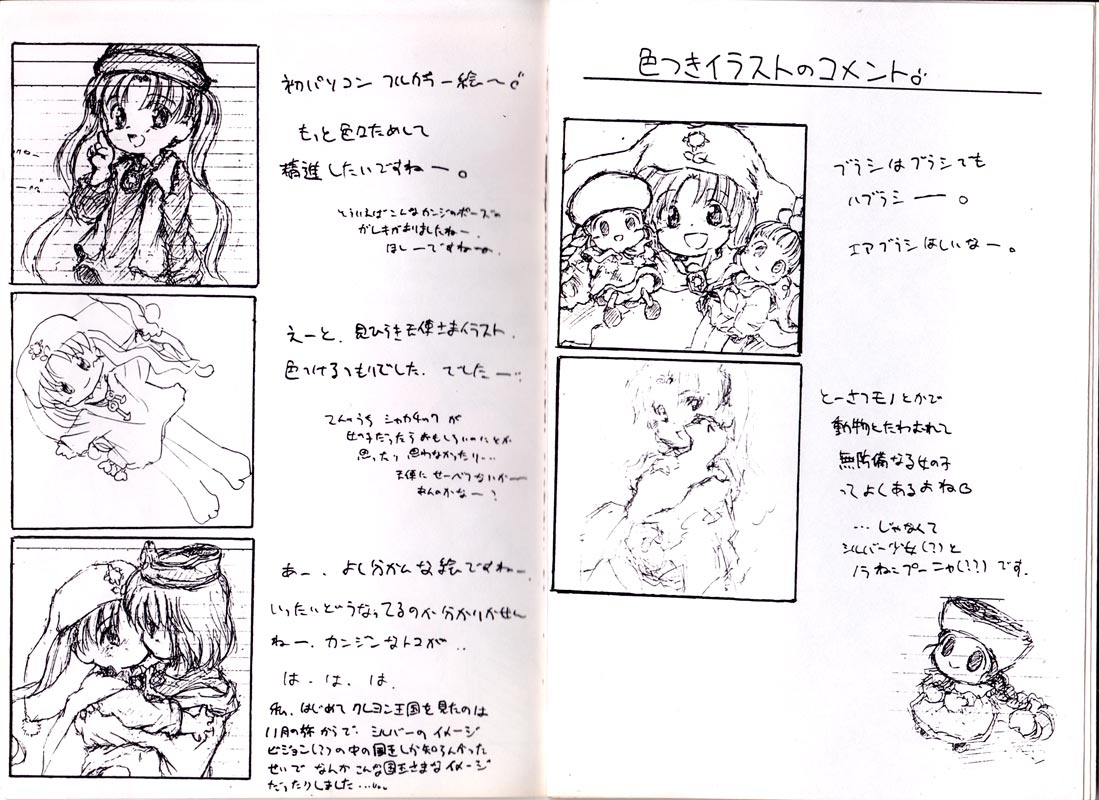 色つきイラストのコメント
ブラシはブラシでも
ハブラシー。
エアブラシほしいなー。
とーさつモノとかで
動物とたわむれて
無防備なる女の子
ってよくあるおね
…じゃなくて
シルバー少女(?)と
ノラねこプーニャ(??)です.
初パソコン フルカラー絵〜
もっと色々ためして
精進したいですねー。
そういえばこんなカンジのポーズの
ガレキがありましたねー.
ほしーですねー.
えーと、見ひらき天使さまイラスト.
色つけるつもりでした. でしたー…
てんのうち シャカチック が
女の子だったらおもしろいのにとか
思ったり 思わなかったり…
天使に せーべつ ないかー
あー、よく分かんな絵ですねー
いったいどうなってるのか分かりません
ねー、カンジンなトコが..
は・は、は.
私、はじめて クレヨン王国を見たのは
11月の旅 からで、シルバーの イメージ
ビジョン(?)の中の国王しか知らんかった
せいで なんか こんな国王さまなイメージ
だったりしました….